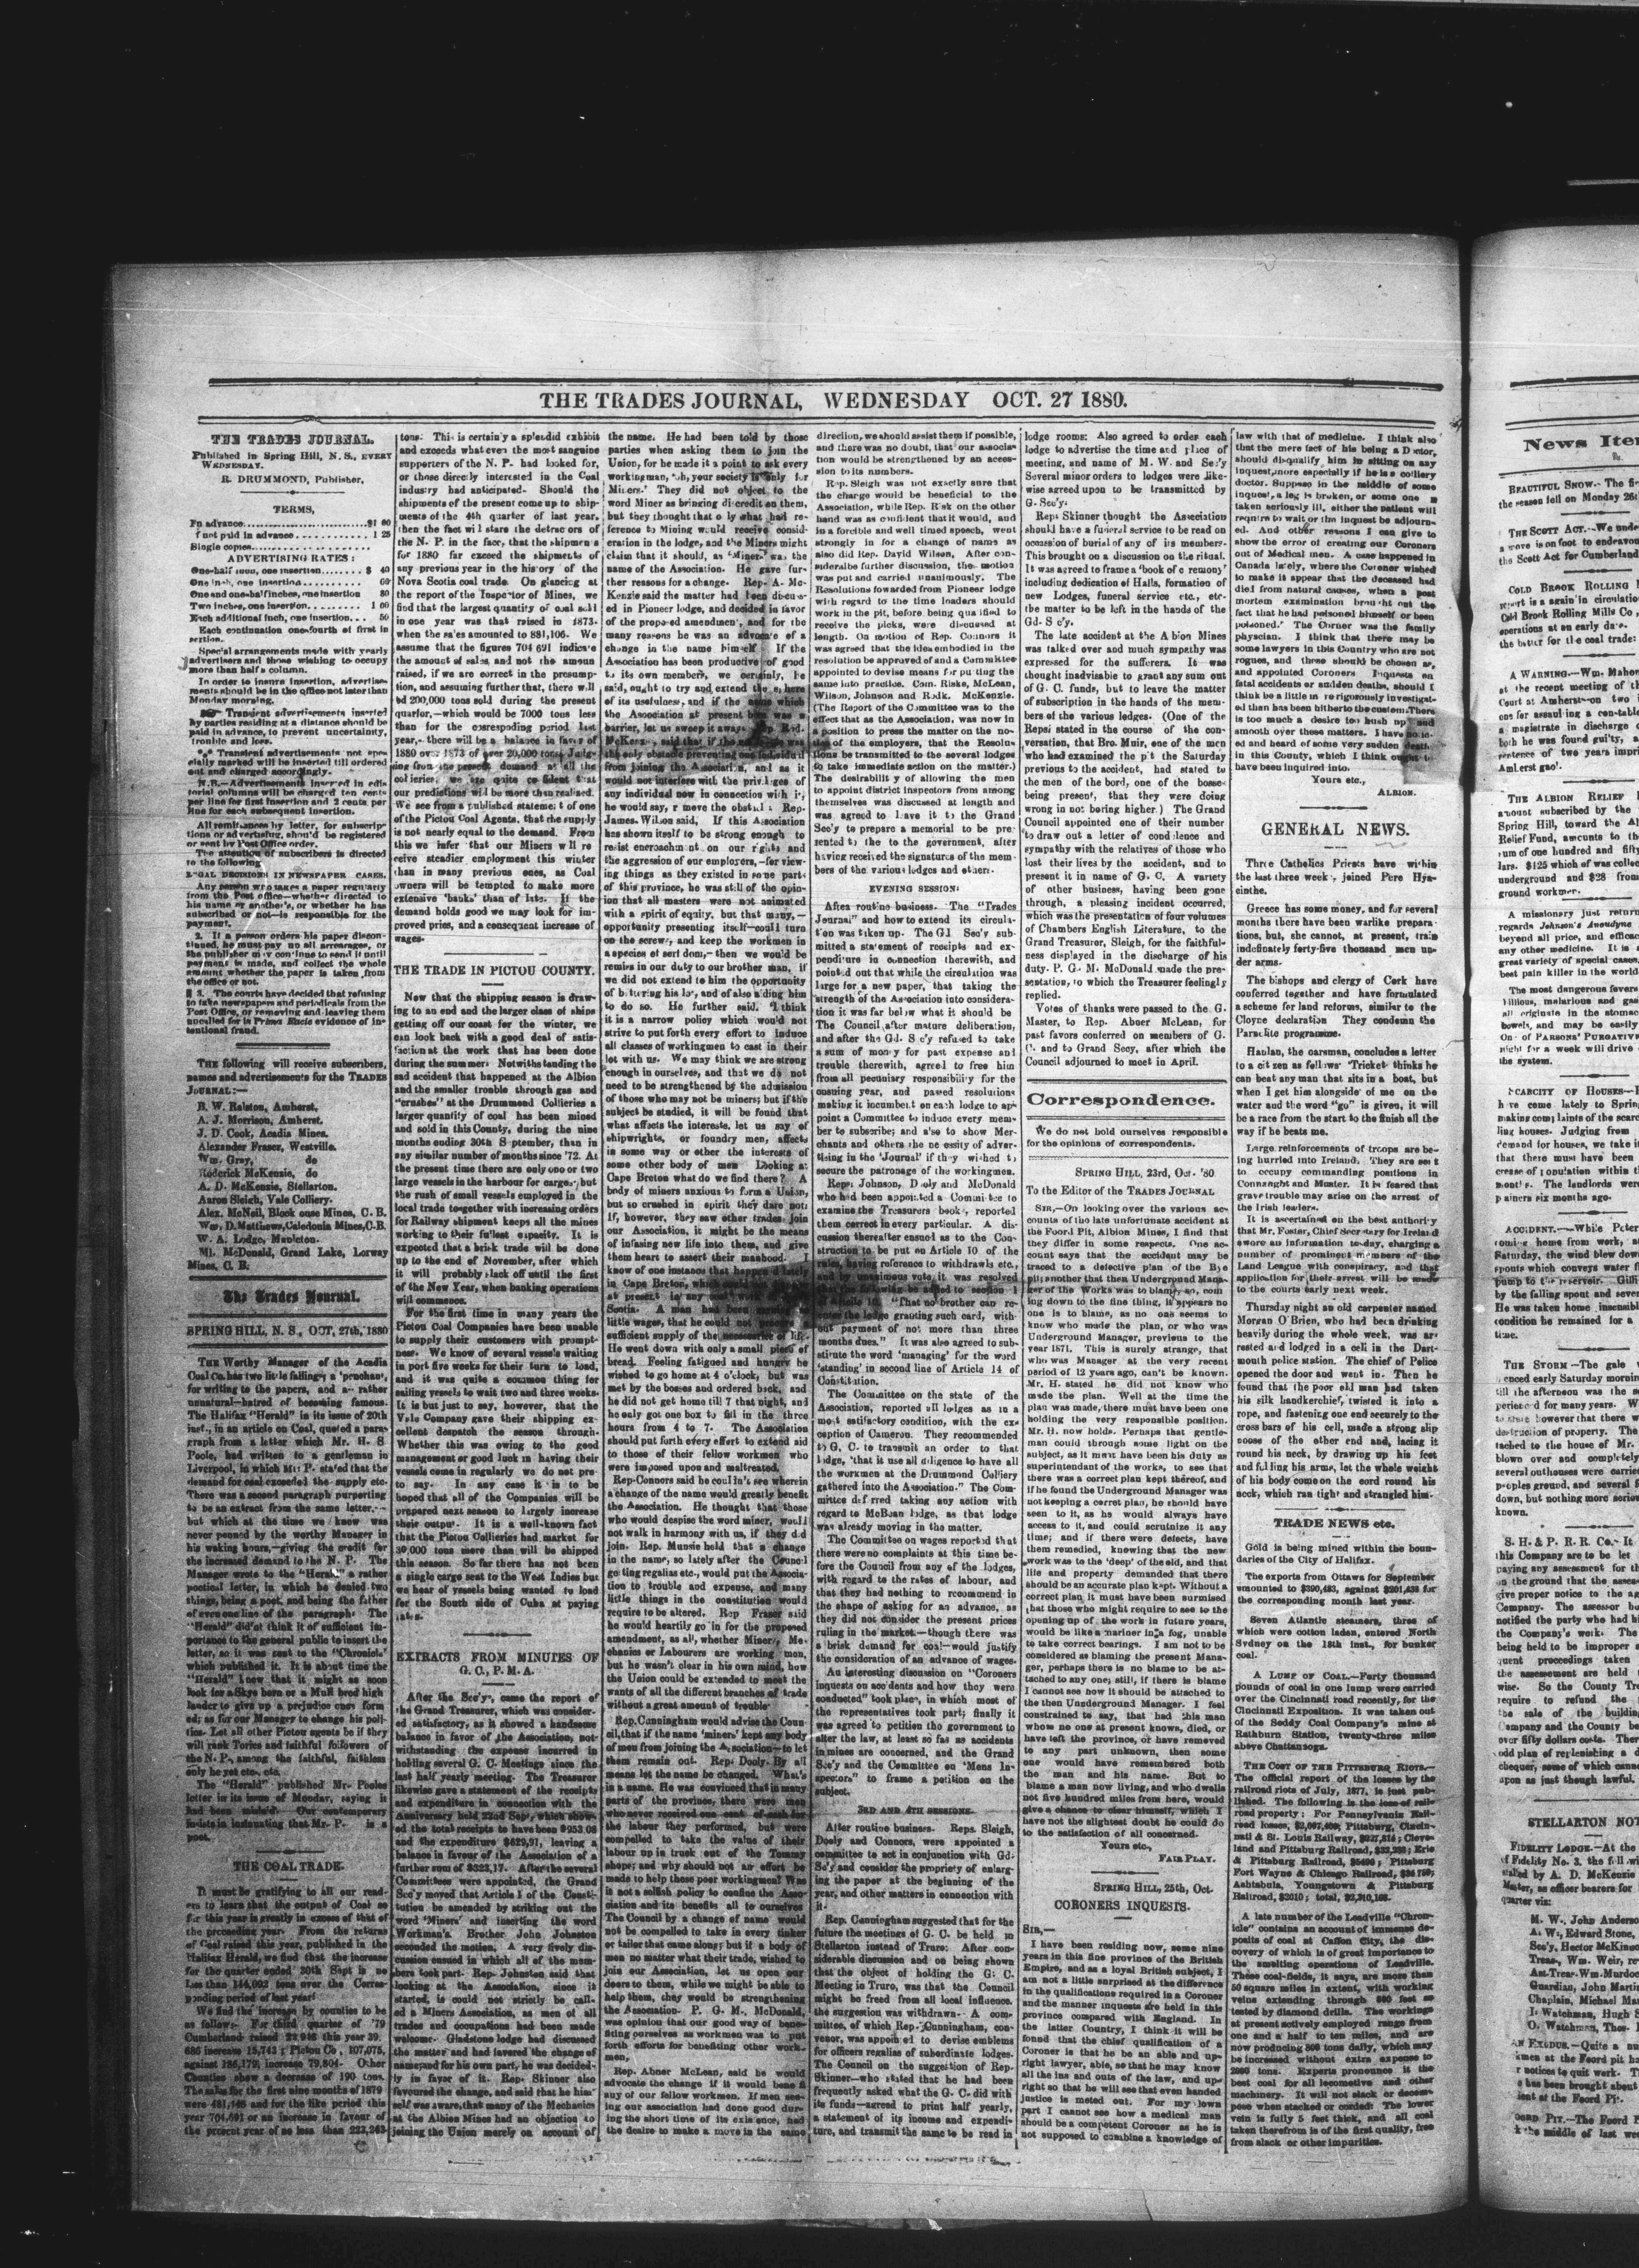 THE TRADES JOURNAL, WEDNESDAY OCT. 27 1880.
THE TRADES JOURNAL.
Published in Spring Hill, N. S., EVERY
WEDNESDAY.
R. DRUMMOND, Publisher.
TERMS,
In advance..............................$1 00
f not paid in advance................ 1 25
Single copies..........................
ADVERTISING RATES :
One-half inch, one insertion........ $ 40
One inch, one insertion.......... 60
One and one-half inches, one insertion 80
Two inches, one insertion.......... 1 00
Each additional inch, one insertion... 50
Each continuation one-fourth of first in
sertion.
Special arrangements made with yearly
advertisers and those wishing to occupy
more than half a column.
In order to insure insertion, advertise-
ments should be in the office not later than
Monday morning.
Transient advertisements inserted
by parties residing at a distance should be
paid in advance, to prevent uncertainty,
trouble and loss.
*** Transient advertisements not spe-
cially marked will be inserted till ordered
out and charged accordingly.
N.B.—Advertisements inserted in edi-
torial columns will be charged ten cents
per line for first insertion and 2 cents per
line for each subsequent insertion.
All remittances by letter, for subscrip-
tions or advertising, should be registered
or sent by Post Office order.
The attention of subscribers is directed
to the following
LEGAL DECISIONS IN NEWSPAPER CASES.
Any person who takes a paper regularly
from the Post office—whether directed to
his name or another's, or whether he has
subscribed or not—is responsible for the
payment.
2. If a person orders his paper discon-
tinued, he must pay up all arrearages, or
the publisher may continue to send it until
payment is made, and collect the whole
amount whether the paper is taken from
the office or not.
3. The courts have decided that refusing
to take newspapers and periodicals from the
Post Office, or removing and leaving them
uncalled for is Prima Facie evidence of in-
tentional fraud.
THE following will receive subscribers,
names and advertisements for the TRADES
JOURNAL:—
B. W. Ralston, Amherst.
A. J. Morrison, Amherst.
J. D. Cook, Acadia Mines.
Alexander Fraser, Westville.
Wm. Gray, do
Roderick McKenzie, do
A. D. McKenzie, Stellarton.
Aaron Sleigh, Vale Colliery.
Alex. McNeil, Block ouse Mines, C. B.
Wm, D. Matthews, Caledonia Mines, C.B.
W. A. Lodge, Mapleton.
Ml. McDonald, Grand Lake, Lorway
Mines, C. B.
The Trades Journal.
SPRING HILL, N. S., OCT, 27th, 1880
THE Worthy Manager of the Acadia
Coal Co. has two little failings; a 'penchan',
for writing to the papers, and a rather
unnatural—hatred of becoming famous.
The Halifax "Herald" in its issue of 20th
inst., in an article on Coal, quoted a para-
graph from a letter which Mr. H. S
Poole, had written to a gentleman in
Liverpool, in which Mr. P. stated that the
demand for coal exceeded the supply etc.
There was a second paragraph purporting
to be an extract from the same letter,—
but which at the time we knew was
never penned by the worthy Manager in
his waking hours,—giving the credit for
the increased demand to the N. P. The
Manager wrote to the "Herald" a rather
poetical letter, in which he denied two
things, being a poet, and being the father
of even one line of the paragraph. The
"Herald" did'nt think it of sufficient im-
portance to the general public to insert the
letter, so it was sent to the "Chronicle"
which published it. It is about time the
"Herald" knew that it might as soon
look for a Skye born or a Mull bred high
lander to give up a prejudice once form
ed; as for our Manager to change his poli-
tics. Let all other Pictou agents be if they
will rank Tories and faithful followers of
the N. P., among the faithful, faithless
only he yet etc. etc.
The "Herald" published Mr. Pooles
letter in its issue of Monday, saying it
had been mislaid. Our contemporary
insists in insinuating that Mr. P. is a
poet.
THE COAL TRADE.
It must be gratifying to all our read-
ers to learn that the output of Coal so
far this year is greatly in excess of that of
the preceeding year. From the returns
of Coal raised this year, published in the
Halifax Herald, we find that the increase
for the quarter ended 30th Sept is no
Less than 144,093 tons over the Corres-
ponding period of last year!
We find the increase by counties to be
as follows. For third quarter of '79
Cumberland raised 23 943 this year 39,
686 increase 15,743 ; Pictou Co , 107,075,
against 186,179, increase 79,804. Other
Counties show a decrease of 190 tons.
The sales for the first nine months of 1879
were 481,446 and for the like period this
year 704,691 or an increase in favour of
the present year of no less than 223,263
tons. This is certainly a splendid exhibit
and exceeds what even the most sanguine
supporters of the N. P. had looked for,
or those directly interested in the Coal
industry had anticipated. Should the
shipments of the present come up to ship-
ments of the 4th quarter of last year,
then the fact will stare the detractors of
the N. P. in the face, that the shipments
for 1880 far exceed the shipments of
any previous year in the history of the
Nova Scotia coal trade. On glancing at
the report of the Inspector of Mines, we
find that the largest quantity of coal sold
in one year was that raised in 1873.
when the sales amounted to 881,106. We
assume that the figures 704 691 indicate
the amount of sales, and not the amoun
raised, if we are correct in the presump-
tion, and assuming further, that there will
bd 200,000 tons sold during the present
quarter,—which would be 7000 tons less
than for the corresponding period last
year,—there will be a balance in favor of
1880 over 1873 of over 20,000 tons. Judg-
ing from the present demand at all the
collieries, we are quite confident that
our predictions will be more than realized.
We see from a published statement of one
of the Pictou Coal Agents, that the supply
is not nearly equal to the demand. From
this we infer that our Miners will re
ceive steadier employment this winter
than in many previous ones, as Coal
owners will be tempted to make more
extensive 'banks' than of late. If the
demand holds good we may look for im-
proved prices, and a consequent increase of
wages.
THE TRADE IN PICTOU COUNTY.
Now that the shipping season is draw-
ing to an end and the larger class of ships
getting off our coast for the winter, we
can look back with a good deal of satis-
faction at the work that has been done
during the summer. Notwithstanding the
sad accident that happened at the Albion
and the smaller trouble through gas and
"crushes" at the Drummond Collieries a
larger quantity of coal has been mined
and sold in this County, during the nine
months ending 30th September, than in
any similar number of months since '72. At
the present time there are only one or two
large vessels in the harbour for cargos, but
the rush of small vessels employed in the
local trade together with increasing orders
for Railway shipment keeps all the mines
working to their fullest capacity. It is
expected that a brisk trade will be done
up to the end of November, after which
it will probably slack off until the first
of the New Year, when banking operations
will commence.
For the first time in many years the
Pictou Coal Companies have been unable
to supply their customers with prompt-
ness. We know of several vessels waiting
in port five weeks for their turn to load,
and it was quite a common thing for
sailing vessels to wait two and three weeks.
It is but just to say, however, that the
Vale Company gave their shipping ex-
cellent despatch the season through.
Whether this was owing to the good
management or good luck in having their
vessels come in regularly we do not pre-
to say. In any case it is to be
hoped that all of the Companies will be
prepared next season to largely increase
their output. It is a well-known fact
that the Pictou Collieries had market for
30,000 tons more than will be shipped
this season. So far there has not been
a single cargo sent to the West Indies but
we hear of vessels being wanted to load
for the South side of Cuba at paying
rates.
EXTRACTS FROM MINUTES OF
G. C., P. M. A.
After the Sec'y's, came the report of
the Grand Treasurer, which was consider-
ed satisfactory, as it showed a handsome
balance in favor of the Association, not-
withstanding the expense incurred in
holding several G. C. Meetings since the
last half yearly meeting. The Treasurer
likewise gave a statement of the receipts
and expenditure in connection with the
Anniversary held 22nd Sept, which show-
ed the total receipts to have been $953,08
and the expenditure $629,91, leaving a
balance in favour of the Association of a
further sum of $323,17. After the several
Committees were appointed, the Grand
Sec'y moved that Article 1 of the Consti-
tution be amended by striking out the
word 'Miners' and inserting the word
Workman's. Brother John Johnston
seconded the motion. A very lively dis-
cussion ensued in which all of the mem-
bers took part. Rep. Johnston said that
looking at the Association, since it
started, is could not strictly be call-
ed a Miners Association, as men of all
trades and occupations had been made
welcome. Gladstone lodge had discussed
the matter and had favored the change of
name and for his own part, he was decided-
ly in favor of it. Rep. Skinner also
favoured the change, and said that he him-
self was aware, that many of the Mechanics
at the Albion Mines had an objection to
joining the Union merely on account of
the name. He had been told by those
parties when asking them to join the
Union, for he made it a point to ask every
workingman, 'oh, your society is only for
Miners.' They did not object to the
word Miner as bringing discredit on them,
but they thought that only what had re-
ference to Mining would receive consid-
eration in the lodge, and the Miners might
claim that it should, as 'Miner' was the
name of the Association. He gave fur-
ther reasons for a change. Rep. A. Mc-
Kenzie said the matter had been discuss-
ed in Pioneer lodge, and decided in favor
of the proposed amendment, and for the
many reasons he was an advocate of a
change in the name himself. If the
Association has been productive of good
to its own members, we certainly, he
said, ought to try and extend the sphere
of its usefulness, and if the name which
the Association at present bears was a
barrier, let us sweep it away. Rep Rod.
McKenzie, said that if the name was
the only obstacle preventing one individual
from joining the Association, and as it
would not interfere with the privileges of
any individual now in connection with it,
he would say, remove the obstacle Rep.
James. Wilson said, If this Association
has shown itself to be strong enough to
resist encroachment on our rights and
the aggression of our employers,—for view-
ing things as they existed in some parts
of this province, he was still of the opin-
ion that all masters were not animated
with a spirit of equity, but that many,—
opportunity presenting itself—could turn
on the screws, and keep the workmen in
a species of serfdom,—then we would be
remiss in our duty to our brother man, if
we did not extend to him the opportunity
of bettering his lot, and of also aiding him
to do so. He further said. 'I think
it is a narrow policy which would not
strive to put forth every effort to induce
all classes of workingmen to cast in their
lot with us. We may think we are strong
enough in ourselves, and that we do not
need to be strengthened by the admission
of those who may not be miners; but if the
subject be studied, it will be found that
what affects the interests, let us say of
shipwrights, or foundry men, affects
in some way or other the interests of
some other body of men Looking at
Cape Breton what do we find there? A
body of miners anxious to form a Union,
but so crushed in spirit they dare not;
If, however, they saw other trades join
our Association, it might be the means
of infusing new life into them, and give
them heart to assert their manhood. I
know of one instance that happened lately
in Cape Breton, which
at present in any
Scotia. A man had been
little wages, that he could not
sufficient supply of the necessaries of life.
He went down with only a small piece of
bread. Feeling fatigued and hungry he
wished to go home at 4 o'clock, but was
met by the bosses and ordered back, and
he did not get home till 7 that night, and
he only got one box to fill in the three
hours from 4 to 7. The Association
should put forth every effort to extend aid
to those of their fellow workmen who
were imposed upon and maltreated.
Rep. Connors said he couldn't see wherein
a change of the name would greatly benefit
the Association. He thought that those
who would despise the word miner, would
not walk in harmony with us, if they did
join. Rep. Munsie held that a change
in the name, so lately after the Council
getting regalias etc., would put the Associa-
tion to trouble and expense, and many
little things in the constitution would
require to be altered. Rep Fraser said
he would heartily go in for the proposed
amendment, as all, whether Miners, Me-
chanics or Labourers are working men,
but he wasn't clear in his own mind, how
the Union could be extended to meet the
wants of all the different branches of trade
without a great amount of trouble
Rep. Cunningham would advise the Coun-
cil, that if the name 'miners' kept any body
of men from joining the Association—to let
them remain out. Rep. Dooly. By all
means let the name be changed. What's
in a name. He was convinced that in many
parts of the province, there were men
who never received one cent of cash for
the labour they performed, but were
compelled to take the value of their
labour up in truck out of the Tommy
shops; and why should not an effort be
made to help these poor workingmen? Was
it not a selfish policy to confine the Asso-
ciation and its benefits all to ourselves
The Council by a change of name would
not be compelled to take in every tinker
or tailor that came along; but if a body of
men no matter what their trade, wished to
join our Association, let us open our
doors to them, while we might be able to
help them, they would be strengthening
the Association. P. G. M., McDonald,
was opinion that our good way of bene-
fiting ourselves as workmen was to put
forth efforts for benefiting other work-
men,
Rep. Abner McLean, said he would
advocate the change if it would benefit
any of our fellow workmen. If men see-
ing our association had done good dur-
ing the short time of its existence, had
the desire to make a move in the same
direction, we should assist them if possible,
and there was no doubt, that our associa-
tion would be strengthened by an acces-
sion to its numbers.
Rep. Sleigh was not exactly sure that
the charge would be beneficial to the
Association, while Rep. Risk on the other
hand was as confident that it would, and
in a forcible and well timed speech, went
strongly in for a change of name as
also did Rep. David Wilson, After con-
siderable further discussion, the motion
was put and carried unanimously. The
Resolutions fowarded from Pioneer lodge
with regard to the time loaders should
work in the pit, before being qualified to
receive the picks, were discussed at
length. On motion of Rep. Connors it
was agreed that the idea embodied in the
resolution be approved of and a Committee
appointed to devise means for putting the
same into practice. Com. Riske, McLean,
Wilson, Johnson and Rodk. McKenzie.
(The Report of the Committee was to the
effect that as the Association, was now in
a position to press the matter on the no-
tice of the employers, that the Resolu-
tions be transmitted to the several lodges
to take immediate action on the matter.)
The desirability of allowing the men
to appoint district inspectors from among
themselves was discussed at length and
was agreed to leave it to the Grand
Sec'y to prepare a memorial to be pre-
sented to the to the government, after
having received the signatures of the mem-
bers of the various lodges and others.
EVENING SESSION:
After routine business. The "Trades
Journal" and how to extend its circula-
tion was taken up. The Gd Sec'y sub-
mitted a statement of receipts and ex-
penditure in connection therewith, and
pointed out that while the circulation was
large for a new paper, that taking the
strength of the Association into considera-
tion it was far below what it should be
The Council, after mature deliberation,
and after the Gd. Sec'y refused to take
a sum of money for past expense and
trouble therewith, agreed to free him
from all pecuniary responsibility for the
ensuing year, and passed resolutions
making it incumbent on each lodge to ap-
point a Committee to induce every mem-
ber to subscribe; and also to show Mer-
chants and others the necessity of adver-
tising in the 'Journal' if they wished to
secure the patronage of the workingmen.
Reps: Johnson, Dooly and McDonald
who had been appointed a Committee to
examine the Treasurers books, reported
them correct in every particular. A dis-
cussion thereafter ensued as to the Con-
struction to be put on Article 10 of the
rules, having reference to withdrawls etc.,
and by unanimous vote, it was resolved
that the following be added to section 1
of article 10. "That no brother can re-
enter the lodge granting such card, with-
out payment of not more than three
months dues." It was also agreed to sub-
stitute the word 'managing' for the word
'standing' in second line of Article 14 of
Constitution.
The Committee on the state of the
Association, reported all lodges as in a
most satisfactory condition, with the ex-
ception of Cameron. They recommended
to G. C. to transmit an order to that
lodge, 'that it use all diligence to have all
the workmen at the Drummond Colliery
gathered into the Association." The Com-
mittee deferred taking any action with
regard to McBean lodge, as that lodge
was already moving in the matter.
The Committee on wages reported that
there were no complaints at this time be-
fore the Council from any of the lodges,
with regard to the rates of labour, and
that they had nothing to recommend in
the shape of asking for an advance, as
they did not consider the present prices
ruling in the market—though there was
a brisk demand for coal—would justify
the consideration of an advance of wages.
An interesting discussion on "Coroners
inquests on accidents and how they were
conducted" took place, in which most of
the representatives took part; finally it
was agreed to petition the government to
alter the law, at least so far as accidents
in mines are concerned, and the Grand
Sec'y and the Committee on 'Mens In-
spectors" to frame a petition on the
subject.
3RD AND 4TH SESSIONS.
After routine business. Reps. Sleigh,
Dooly and Connors, were appointed a
committee to act in conjunction with Gd-
Se'y and consider the propriety of enlarg-
ing the paper at the beginning of the
year, and other matters in connection with
it.
Rep. Cunningham suggested that for the
future the meetings of G. C. be held in
Stellarton instead of Truro: After con-
siderable discussion and on being shown
that the object of holding the G. C.
Meeting in Truro, was that the Council
might be freed from all local influence.
the suggestion was withdrawn. A com-
mittee, of which Rep. Cunningham, con-
venor, was appointed to devise emblems
for officers regalias of subordinate lodges.
The Council on the suggestion of Rep.
Skinner—who stated that he had been
frequently asked what the G. C. did with
its funds—agreed to print half yearly,
a statement of its income and expendi-
ture, and transmit the same to be read in
lodge rooms: Also agreed to order each
lodge to advertise the time and place of
meeting, and name of M. W. and Sec'y
Several minor orders to lodges were like-
wise agreed upon to be transmitted by
G. Sec'y.
Rep. Skinner thought the Association
should have a funeral service to be read on
occassion of burial of any of its members.
This brought on a discussion on the ritual.
It was agreed to frame a 'book of ceremony'
including dedication of Halls, formation of
new Lodges, funeral service etc., etc.
the matter to be left in the hands of the
Gd. Sec'y.
The late accident at the Albion Mines
was talked over and much sympathy was
expressed for the sufferers. It was
thought inadvisable to grant any sum out
of G. C. funds, but to leave the matter
of subscription in the hands of the mem-
bers of the various lodges. (One of the
Reps: stated in the course of the con-
versation, that Bro. Muir, one of the men
who had examined the pit the Saturday
previous to the accident, had stated to
the men of the bord, one of the bosses
being present, that they were doing
wrong in not boring higher.) The Grand
Council appointed one of their number
to draw out a letter of condolence and
sympathy with the relatives of those who
lost their lives by the accident, and to
present it in name of G. C. A variety
of other business, having been gone
through, a pleasing incident occurred,
which was the presentation of four volumes
of Chambers English Literature, to the
Grand Treasurer, Sleigh, for the faithful-
ness displayed in the discharge of his
duty. P. G. M. McDonald made the pre-
sentation, to which the Treasurer feelingly
replied.
Votes of thanks were passed to the G.
Master, to Rep. Abner McLean, for
past favors conferred on members of G.
C. and to Grand Secy, after which the
Council adjourned to meet in April.
Correspondence.
We do not hold ourselves responsible
for the opinions of correspondents.
SPRING HILL, 23rd, Oct. '80
To the Editor of the TRADES JOURNAL
SIR,—On looking over the various ac-
counts of the late unfortunate accident at
the Foord Pit, Albion Mines, I find that
they differ in some respects. One ac-
count says that the accident may be
traced to a defective plan of the Bye
pit; another that then Underground Mana-
ger of the Works was to blame, so, com
ing down to the fine thing, it appears no
one is to blame, as no one seems to
know who made the plan, or who was
Underground Manager, previous to the
year 1871. This is surely strange, that
who was Manager at the very recent
period of 12 years ago, can't be known.
Mr. H. stated he did not know who
made the plan. Well at the time the
plan was made, there must have been one
holding the very responsible position.
Mr. H. now holds. Perhaps that gentle-
man could through some light on the
subject, as it must have been his duty as
superintendant of the works, to see that
there was a correct plan kept thereof, and
if he found the Underground Manager was
not keeping a correct plan, he should have
seen to it, as he would always have
access to it, and could scrutinize it any
time; and if there were defects, have
them remedied, knowing that the new
work was to the 'deep' of the old, and that
life and property demanded that there
should be an accurate plan kept. Without a
correct plan it must have been surmised
that those who might require to see to the
opening up of the work in future years,
would be like a mariner in a fog, unable
to take correct bearings. I am not to be
considered as blaming the present Mana-
ger, perhaps there is no blame to be at-
tached to any one; still, if there is blame
I cannot see how it should be attached to
the then Unsderground Manager. I feel
constrained to say, that had this man
whose no one at present knows, died, or
have left the province, or have removed
to any part unknown, then some
one would have remembered both
the man and his name. But to
blame a man now living, and who dwells
not five hundred miles from here, would
give a chance to clear himself, which I
have not the slightest doubt he could do
to the satisfaction of all concerned.
Yours etc.,
FAIR PLAY.
SPRING HILL, 25th, Oct.
CORONERS INQUESTS.
SIR,—
I have been residing now, some nine
years in this fine province of the British
Empire, and as a loyal British subject, I
am not a little surprised at the difference
in the qualifications required in a Coroner
and the manner inquests are held in this
province compared with England. In
the latter Country, I think it will be
found that the chief qualification of a
Coroner is that he be an able and up-
right lawyer, able, so that he may know
all the ins and outs of the law, and up-
right so that he will see that even handed
justice is meted out. For my own
part I cannot see how a medical man
should be a competent Coroner as he is
not supposed to combine a knowledge of
law with that of medicine. I think also
that the mere fact of his being a Doctor,
should disqualify him in sitting on any
inquest, more especially if he is a colliery
doctor. Suppose in the middle of some
inquest, a leg is broken, or some one is
taken seriously ill, either the patient will
require to wait or the inquest be adjourn-
ed. And other reasons I can give to
show the error of creating our Coroners
out of Medical men. A case happened in
Canada lately, where the Coroner wished
to make it appear that the deceased had
died from natural causes, when a post
mortem examination brought out the
fact that he had poisoned himself or been
poisoned.' The Corner was the family
physcian. I think that there may be
some lawyers in this Country who are not
rogues, and these should be chosen as,
and appointed Coroners Inquests on
fatal accidents or sudden deaths, should I
think be a little more rigorously investigat-
ed than has been hitherto the custom. There
is too much a desire too hush up and
smooth over these matters. I have notic-
ed and heard of some very sudden deaths
in this County, which I think ought to
have been inquired into.
Yours etc.,
ALBION.
GENERAL NEWS.
Three Catholics Priests have within
the last three weeks, joined Pere Hya-
cinthe.
Greece has some money, and for several
months there have been warlike prepara-
tions, but, she cannot, at present, train
indefinately forty-five thousand men un-
der arms.
The bishops and clergy of Cork have
conferred together and have formulated
a scheme for land reforms, similar to the
Cloyce declaration They condemn the
Parachte programme.
Hanlan, the oarsman, concludes a letter
to a citizen as follows 'Tricket thinks he
can beat any man that sits in a boat, but
when I get him alongside of me on the
water and the word "go" is given, it will
be a race from the start to the finish all the
way if he beats me.
Large reinforcements of troops are be-
ing hurried into Ireland. They are sent
to occupy commanding positions in
Connanght and Munster. It is feared that
grave trouble may arise on the arrest of
the Irish leaders.
It is ascertained on the best authority
that Mr. Foster, Chief Secretary for Ireland
swore an information to-day, charging a
number of prominent members of the
Land League with conspiracy, and that
application for their arrest will be made
to the courts early next week.
Thursday night an old carpenter named
Morgan O'Brien, who had been drinking
heavily during the whole week, was ar-
rested and lodged in a cell in the Dart-
mouth police station. The chief of Police
opened the door and went in. Then he
found that the poor old man had taken
his silk handkerchief, twisted it into a
rope, and fastening one end securely to the
cross bars of his cell, made a strong slip
noose of the other end and, lacing it
round his neck, by drawing up his feet
and folding his arms, let the whole weight
of his body come on the cord round his
neck, which ran tight and strangled him.
TRADE NEWS etc.
Gold is being mined within the boun-
daries of the City of Halifax.
The exports from Ottawa for September
amounted to $390,483, against $201,433 for
the corresponding month last year.
Seven Atlantic steamers, three of
which were cotton laden, entered North
Sydney on the 18th inst., for bunker
coal.
A LUMP OF COAL.—Forty thousand
pounds of coal in one lump were carried
over the Cincinnati road recently, for the
Cincinnati Exposition. It was taken out
of the Seddy Coal Company's mine at
Rathburn Station, twenty-three miles
above Chattanooga.
THE COST OF THE PITTSBURG RIOTS.—
The official report of the losses by the
railroad riots of July, 1877, is just pub-
lished. The following is the loss of rail-
road property : For Pennsylvania Rail-
road losses, $2,007,400; Pittsburg, Cincin-
nati & St. Louis Railway, $227,814; Cleve-
land and Pittsburg Railroad, $32,238; Erie
& Pittsburg Railroad, $5496; Pittsburg
Fort Wayne & Chicago Railroad, $34 750;
Ashtabula, Youngstown & Pittsburg
Railroad, $2010; total, $2,310,108.
A late number of the Leadville "Chron-
icle" contains an account of immense de-
posits of coal at Cañon City, the dis-
covery of which is of great importance to
the smelting operations of Leadville.
These coal-fields, it says, are more than
50 square miles in extent, with working
veins extending through 800 feet as
tested by diamond drills. The workings
at present actively employed range from
one and a half to ten miles, and are
now producing 800 tons daily, which may
be increased without extra expense to
2000 tons. Experts pronounce it the
best coal for all locomotive and other
machinery. It will not slack or decom-
pose when stacked or corded: The lower
vein is fully 5 feet thick, and all coal
taken therefrom is of the first quality, free
from slack or other impurities.
News Ite
BEAUTIFUL SNOW.- The fi
the season fell on Monday 26t
THE SCOTT ACT.—We unde
a move is on foot to endeavou
the Scott Act for Cumberland
COLD BROOK ROLLING
report is again in circulatio
Cold Brook Rolling Mills Co,
operations at an early date.
the better for the coal trade:
A WARNING—Wm. Maho
at the recent meeting of t
Court at Amherst—on two
one for assaulting a constable
a magistrate in discharge
both he was found guilty,
sentence of two years impri
Amherst gaol.
THE ALBION RELIEF
amount subscribed by the
Spring Hill, toward the Al
Relief Fund, amounts to th
sum of one hundred and fifty
lars. $125 which of was collec
underground and $28 from
ground workmen.
A missionary just return
regards Johnson's Anoudyne
beyond all price, and efficac
any other medicine. It is
great variety of special cases,
best pain killer in the world
The most dangerous fevers
billious, malarious and gas
all originate in the stomac
bowels, and may be easily
One of PARSONS' PURGATIVE
night for a week will drive
the system.
SCARCITY OF HOUSES—
have come lately to Spring
making complaints of the scarc
ling houses. Judging from
demand for houses, we take i
that there must have been
crease of population within t
months. The landlords were
plainers six months ago.
ACCIDENT.—While Peter
coming home from work,
Saturday, the wind blew down
spouts which conveys water f
pump to the reservoir. Gilli
by the falling spout and seve
He was taken home insensibl
condition he remained for a
time.
THE STORM—The gale
menced early Saturday mornin
till the afternoon was the s
perienced for many years. W
to state however that there w
destruction of property. The
tached to the house of Mr.
blown over and completely
several outhouses were carrie
peoples ground, and several f
down, but nothing more seriou
known.
S. H. & P. R. R. Co.—It
this Company are to be let
paying any assessment for th
on the ground that the asses
give proper notice to the ag
Company. The assessor bu
notified the party who had hi
the Company's work. The
being held to be improper a
quent proceedings taken
the assessment are held
wise. So the County Tre
require to refund the
the sale of the building
Company and the County be
over fifty dollars costs. Ther
odd plan of replenishing a d
chequer, some of which canne
upon as just though lawful.
STELLARTON NOT
FIDELITY LODGE.—At the
of Fidelity No. 3, the foll wi
stalled by A. D. McKenzie
Master, as officer bearers for
quarter viz:
M. W., John Anderso
A. W., Edward Stone,
Sec'y, Hector McKinno
Treas, Wm. Weir, re
Ass. Treas. Wm. Murdoc
Guardian, John Marti
Chaplain, Michael Ma
I. Watchman, Hugh S
O. Watchman, Thos. I
AN EXODUS.—Quite a nu
kmen at the Foord pit ha
r notices to quit work. T
e has been brought about
lent at the Foord Pit.
FOORD PIT.—The Foord P
k the middle of last wee